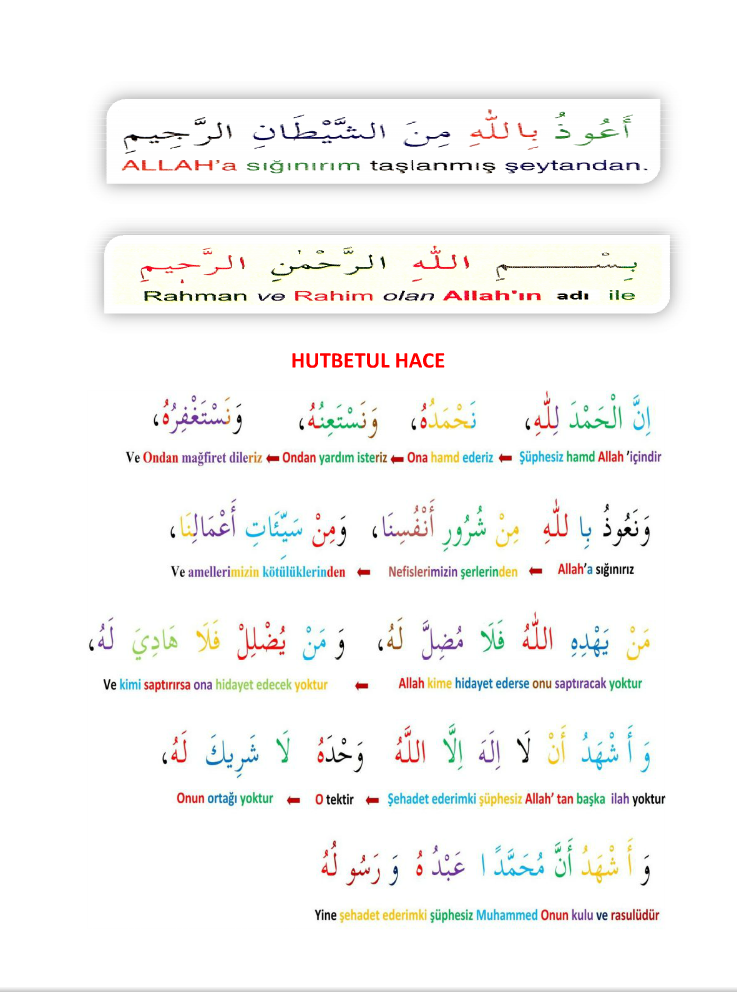 أَعُوذُ بِاللّٰهِ مِنَ الشَّيْطَانِ الرَّجِيمِ
ALLAH'a sığınırım taşlanmış şeytandan.
بِسْــــــــمِ اللّٰهِ الرَّحْمٰنِ الرَّحِيمِ
Rahman ve Rahim olan Allah'ın adı ile
HUTBETUL HACE
اِنَّ الْحَمْدَ لِلّٰهِ، نَحْمَدُهُ، وَنَسْتَعِنُهُ، وَنَسْتَغْفِرُهُ،
Ve Ondan mağfiret dileriz ⬅ Ondan yardım isteriz ⬅ Ona hamd ederiz ⬅ Şüphesiz hamd Allah 'içindir
وَنَعُوذُ بِا للّٰهِ مِنْ شُرُورِ أَنْفُسِنَا، وَمِنْ سَيِّئَاتِ أَعْمَالِنَا،
Ve amellerimizin kötülüklerinden ⬅ Nefislerimizin şerlerinden ⬅ Allah'a sığınırız
مَنْ يَهْدِهِ اللّٰهُ فَلَا مُضِلَّ لَهُ، وَ مَنْ يُضْلِلْ فَلَا هَادِيَ لَهُ،
Ve kimi saptırırsa ona hidayet edecek yoktur ⬅ Allah kime hidayet ederse onu saptıracak yoktur
وَ أَ شْهَدُ أَنْ لَا اِلَهَ اِلَّا اللَّهُ وَحْدَهُ لَا شَرِيكَ لَهُ،
Onun ortağı yoktur ⬅ O tektir ⬅ Şehadet ederimki şüphesiz Allah' tan başka ilah yoktur
وَ أَ شْهَدُ أَنَّ مُحَمَّدً ا عَبْدُ هُ وَ رَسُو لُهُ
Yine şehadet ederimki şüphesiz Muhammed Onun kulu ve rasulüdür